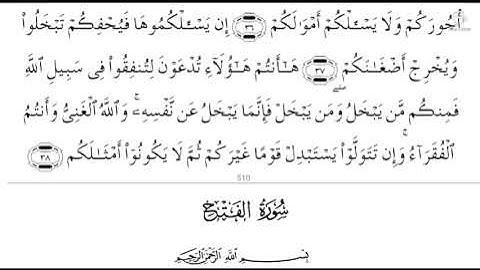 أُجُورَكُمْ وَلَا يَسْـَٔلْكُمْ أَمْوَٰلَكُمْ ٣٦ إِن يَسْـَٔلْكُمُوهَا فَيُحْفِكُمْ تَبْخَلُوا۟
وَيُخْرِجْ أَضْغَـٰنَكُمْ ٣٧ هَـٰٓأَنتُمْ هَـٰٓؤُلَآءِ تُدْعَوْنَ لِتُنفِقُوا۟ فِى سَبِيلِ ٱللَّهِ
فَمِنكُم مَّن يَبْخَلُ ۖ وَمَن يَبْخَلْ فَإِنَّمَا يَبْخَلُ عَن نَّفْسِهِۦ ۚ وَٱللَّهُ ٱلْغَنِىُّ وَأَنتُمُ
ٱلْفُقَرَآءُ ۚ وَإِن تَتَوَلَّوْا۟ يَسْتَبْدِلْ قَوْمًا غَيْرَكُمْ ثُمَّ لَا يَكُونُوٓا۟ أَمْثَـٰلَكُم ٣٨
510
سُورَةُ الْفَتْحِ
بِسْمِ اللَّهِ الرَّحْمَٰنِ الرَّحِيمِ